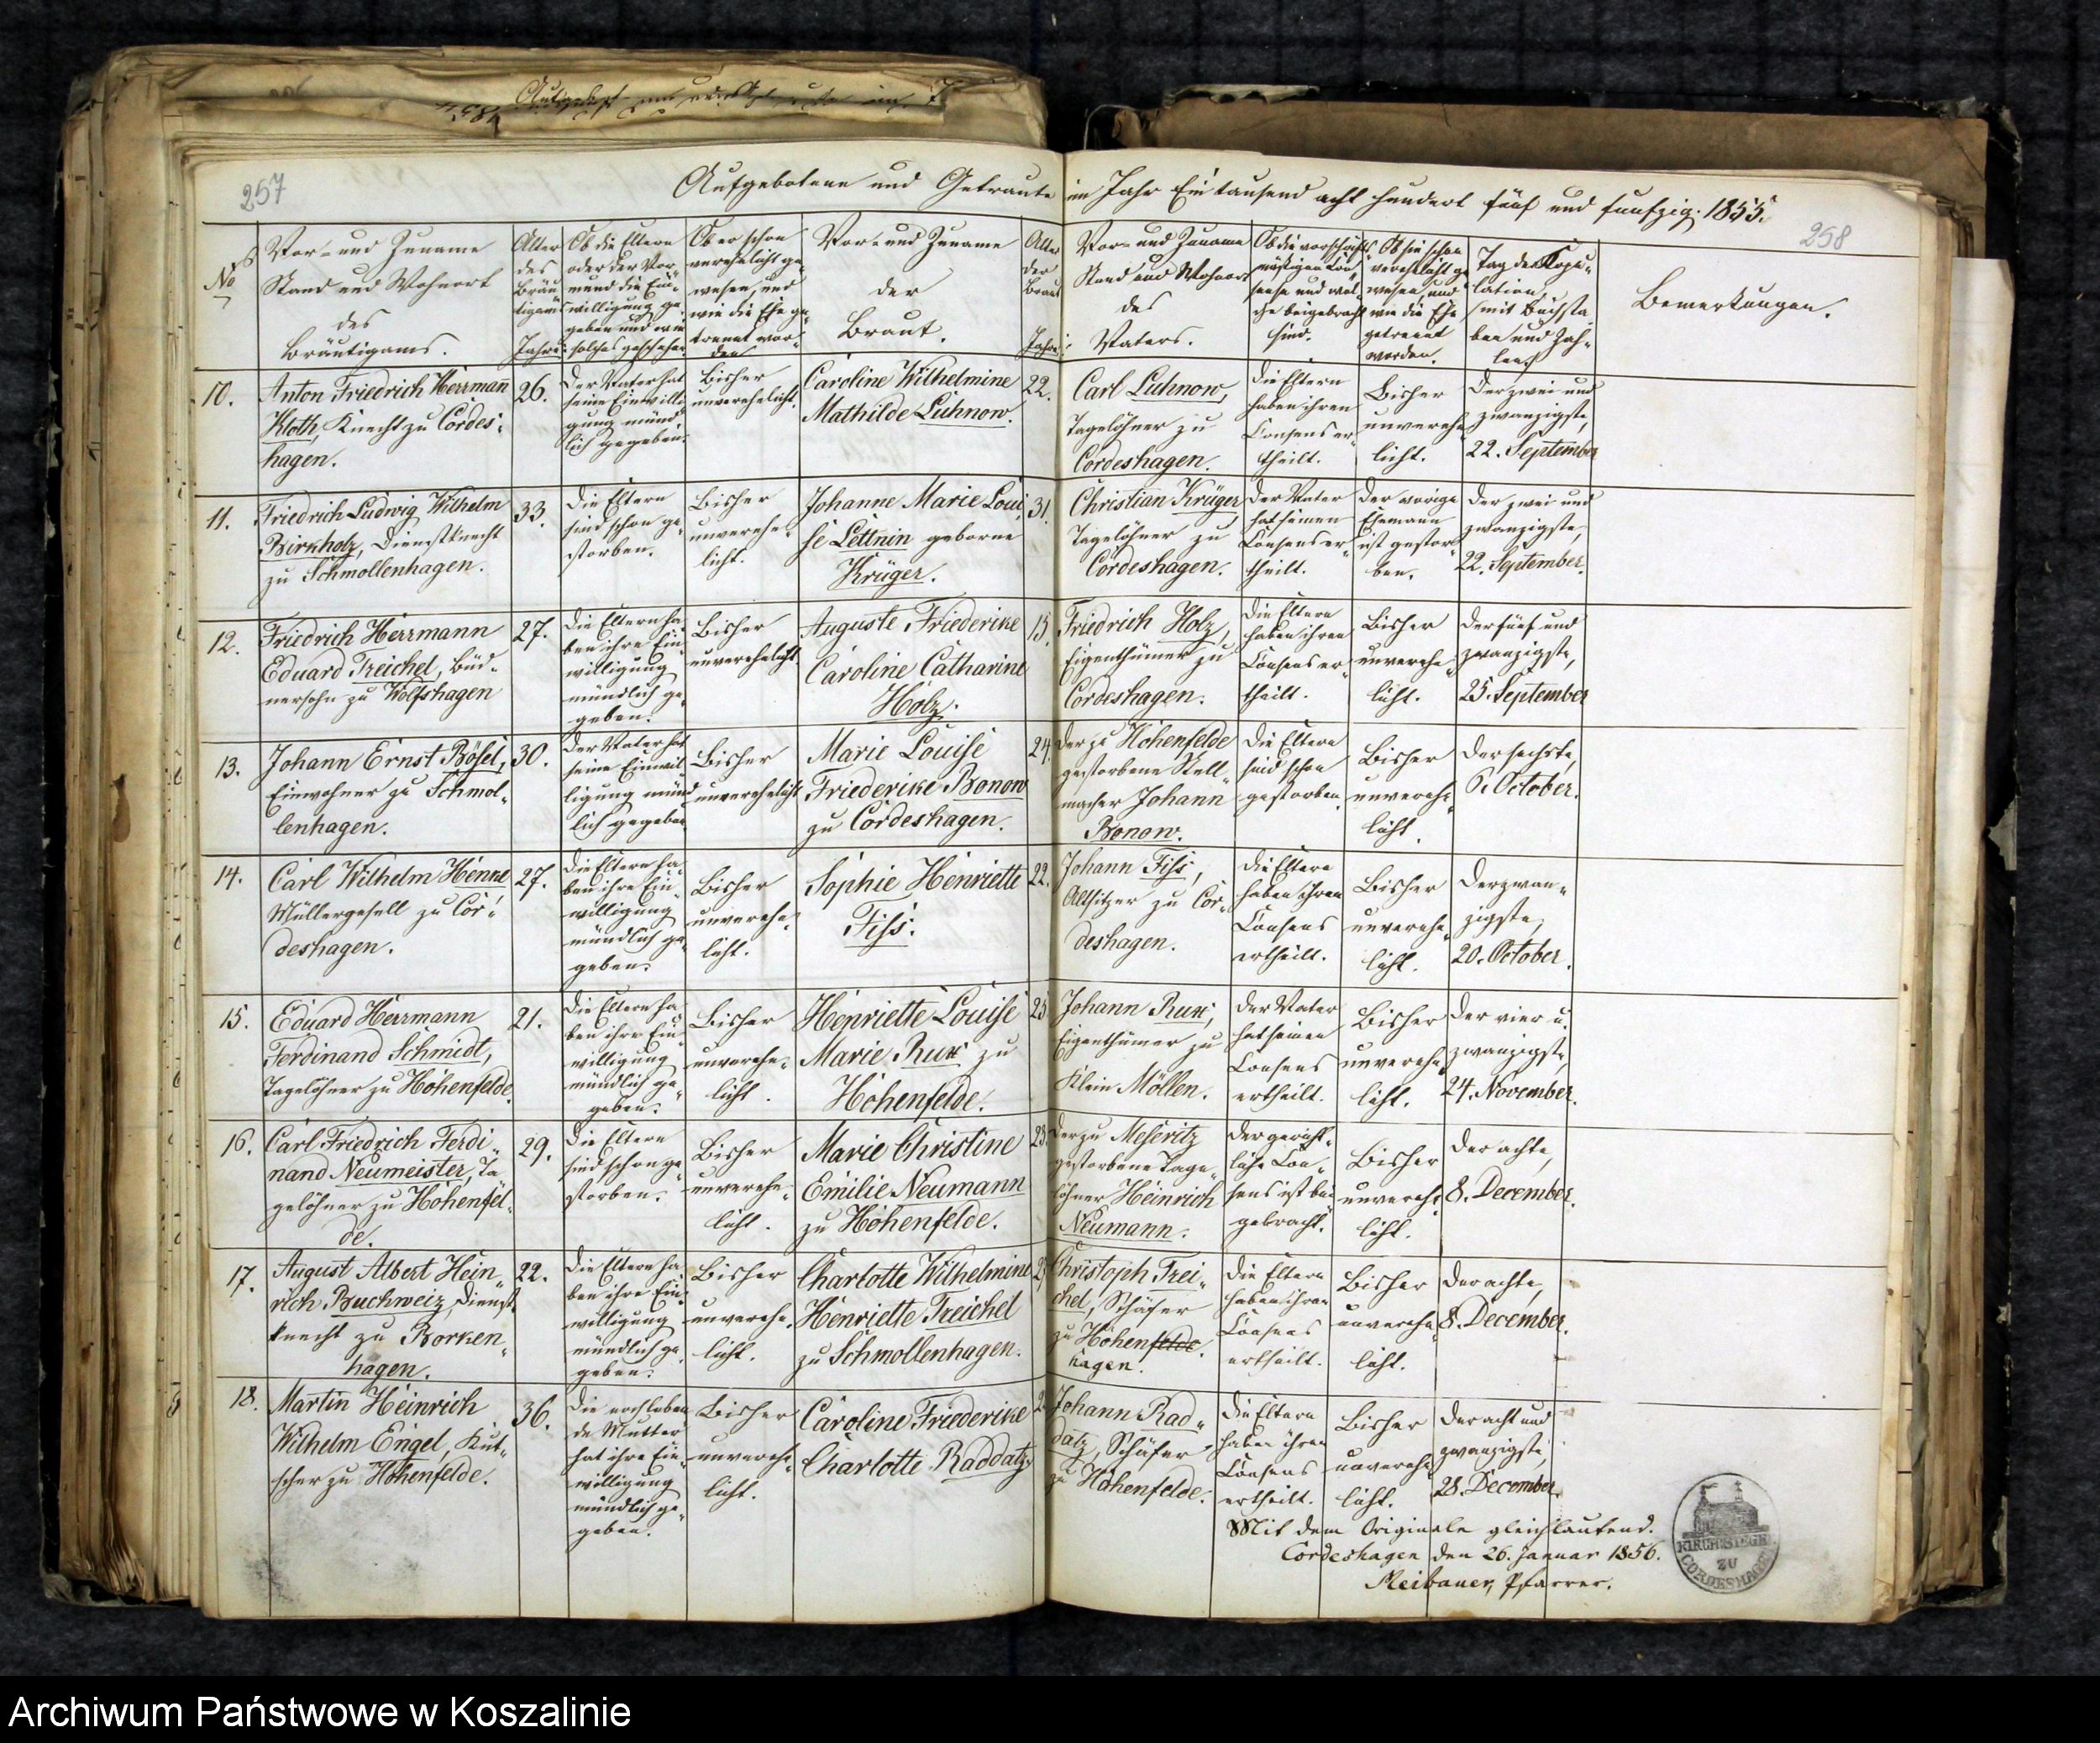 257
Aufgebotene und Getraute im Jahr Ein tausend acht hundert fünf und funfzig. 1855.
258
No
Vor- und Zuname
Stand und Wohnort
des
Bräutigams.
Alter
des
Bräu
tigams
Jahre:
Ob die Eltern
oder der Vor-
mund die Ein-
willigung ge-
geben und wie
solches geschehen
Ob er schon
verehelicht ge-
wesen, und
wie die Ehe ge-
trennt wor-
den
Vor- und Zuname
der
Braut.
Alter
der
Braut
Jahre:
Vor- und Zuname
Stand und Wohnort
des
Vaters.
Ob die vorschrifts-
mäßigen Con-
sense und wel-
che beigebracht
sind.
Ob sie schon
verehelicht ge-
wesen, und
wie die Ehe
getrennt
worden.
Tag der Kopu-
lation,
(mit Buchsta-
ben und Zah-
len.)
Bemerkungen.
10.
Anton Friedrich Herrmann
Kloth, Knecht zu Cordes-
hagen.
26.
Der Vater hat
seine Einwilli-
gung münd-
lich gegeben.
Bisher
unverehelicht.
Caroline Wilhelmine
Mathilde Lühnow.
22.
Carl Lühnow,
Tagelöhner zu
Cordeshagen.
Die Eltern
haben ihren
Consens er-
theilt.
Bisher
unverehe-
licht.
Der zwei und
zwanzigste,
22. September
11.
Friedrich Ludwig Wilhelm
Birkholz, Dienstknecht
zu Schmollenhagen.
33.
Die Eltern
sind schon ge-
storben.
Bisher
unverehe-
licht.
Johanne Marie Loui-
se Lettnin geborne
Krüger.
31.
Christian Krüger
Tagelöhner zu
Cordeshagen.
Der Vater
hat seinen
Consens er-
theilt.
Der vorige
Ehemann
ist gestor-
ben.
Der zwei und
zwanzigste,
22. September.
12.
Friedrich Herrmann
Eduard Treichel, Büd-
nersohn zu Wolfshagen
27.
Die Eltern ha-
ben ihre Ein-
willigung
mündlich ge-
geben.
Bisher
unverehelicht
Auguste Friederike
Caroline Catharine
Holz.
Friedrich Holz,
Eigenthümer zu
Cordeshagen.
Die Eltern
haben ihren
Consens er-
theilt.
Bisher
unverehe-
licht.
Der fünf und
zwanzigste,
25. September
13.
Johann Ernst Bösel,
Einwohner zu Schmol-
lenhagen.
30.
Der Vater hat
seine Einwil-
ligung münd-
lich gegeben
Bisher
unverehelicht
Marie Louise
Friederike Bonow
zu Cordeshagen.
24.
Der zu Hohenfelde
gestorbene Stell-
macher Johann
Bonow.
Die Eltern
sind schon
gestorben.
Bisher
unverehe-
licht.
Der sechste,
6. October.
14.
Carl Wilhelm Henke
Müllergesell zu Cor-
deshagen.
27.
Die Eltern ha-
ben ihre Ein-
willigung
mündlich ge-
geben.
Bisher
unverehe-
licht.
Sophie Henriette
Fiss.
22.
Johann Fiss,
Altsitzer zu Cor-
deshagen.
Die Eltern
haben ihren
Consens
ertheilt.
Bisher
unverehe-
licht.
Der zwan-
zigste,
20. October.
15.
Eduard Herrmann
Ferdinand Schmidt,
Tagelöhner zu Hohenfelde.
21.
Die Eltern ha-
ben ihre Ein-
willigung
mündlich ge-
geben.
Bisher
unverehe-
licht.
Henriette Louise
Marie Rux zu
Hohenfelde.
Johann Rux,
Eigenthümer zu
Klein Möllen.
Der Vater
hat seinen
Consens
ertheilt.
Bisher
unverehe-
licht.
Der vier u.
zwanzigste,
24. November.
16.
Carl Friedrich Ferdi-
nand Neumeister, Ta-
gelöhner zu Hohenfel-
de.
29.
Die Eltern
sind schon ge-
storben.
Bisher
unverehe-
licht.
Marie Christine
Emilie Neumann
zu Hohenfelde.
23.
Der zu Meseritz
gestorbene Tage-
löhner Heinrich
Neumann.
Der gericht-
liche Con-
sens ist bei-
gebracht.
Bisher
unverehe-
licht.
Der achte,
8. December.
17.
August Albert Hein-
rich Buchweiz, Dienst-
knecht zu Borken-
hagen.
22.
Die Eltern ha-
ben ihre Ein-
willigung
mündlich ge-
geben.
Bisher
unverehe-
licht.
Charlotte Wilhelmine
Henriette Treichel
zu Schmollenhagen.
Christoph Trei-
chel, Schäfer
zu Hohenfelde.
hagen.
Die Eltern
haben ihren
Consens
ertheilt.
Bisher
unverehe-
licht.
Der achte,
8. December.
18.
Martin Heinrich
Wilhelm Engel, Kut-
scher zu Hohenfelde.
36.
Die noch leben-
de Mutter
hat ihre Ein-
willigung
mündlich ge-
geben.
Bisher
unverehe-
licht.
Caroline Friederike
Charlotte Raddatz.
Johann Rad-
datz, Schäfer
zu Hohenfelde.
Die Eltern
haben ihren
Consens
ertheilt.
Bisher
unverehe-
licht.
Der acht und
zwanzigste,
28. December.
Mit dem Originale gleichlautend.
Cordeshagen den 26. Januar 1856.
Meibauer, Pfarrer.
KIRCHSIEGEL
ZU
CORDESHAGEN
Archiwum Państwowe w Koszalinie